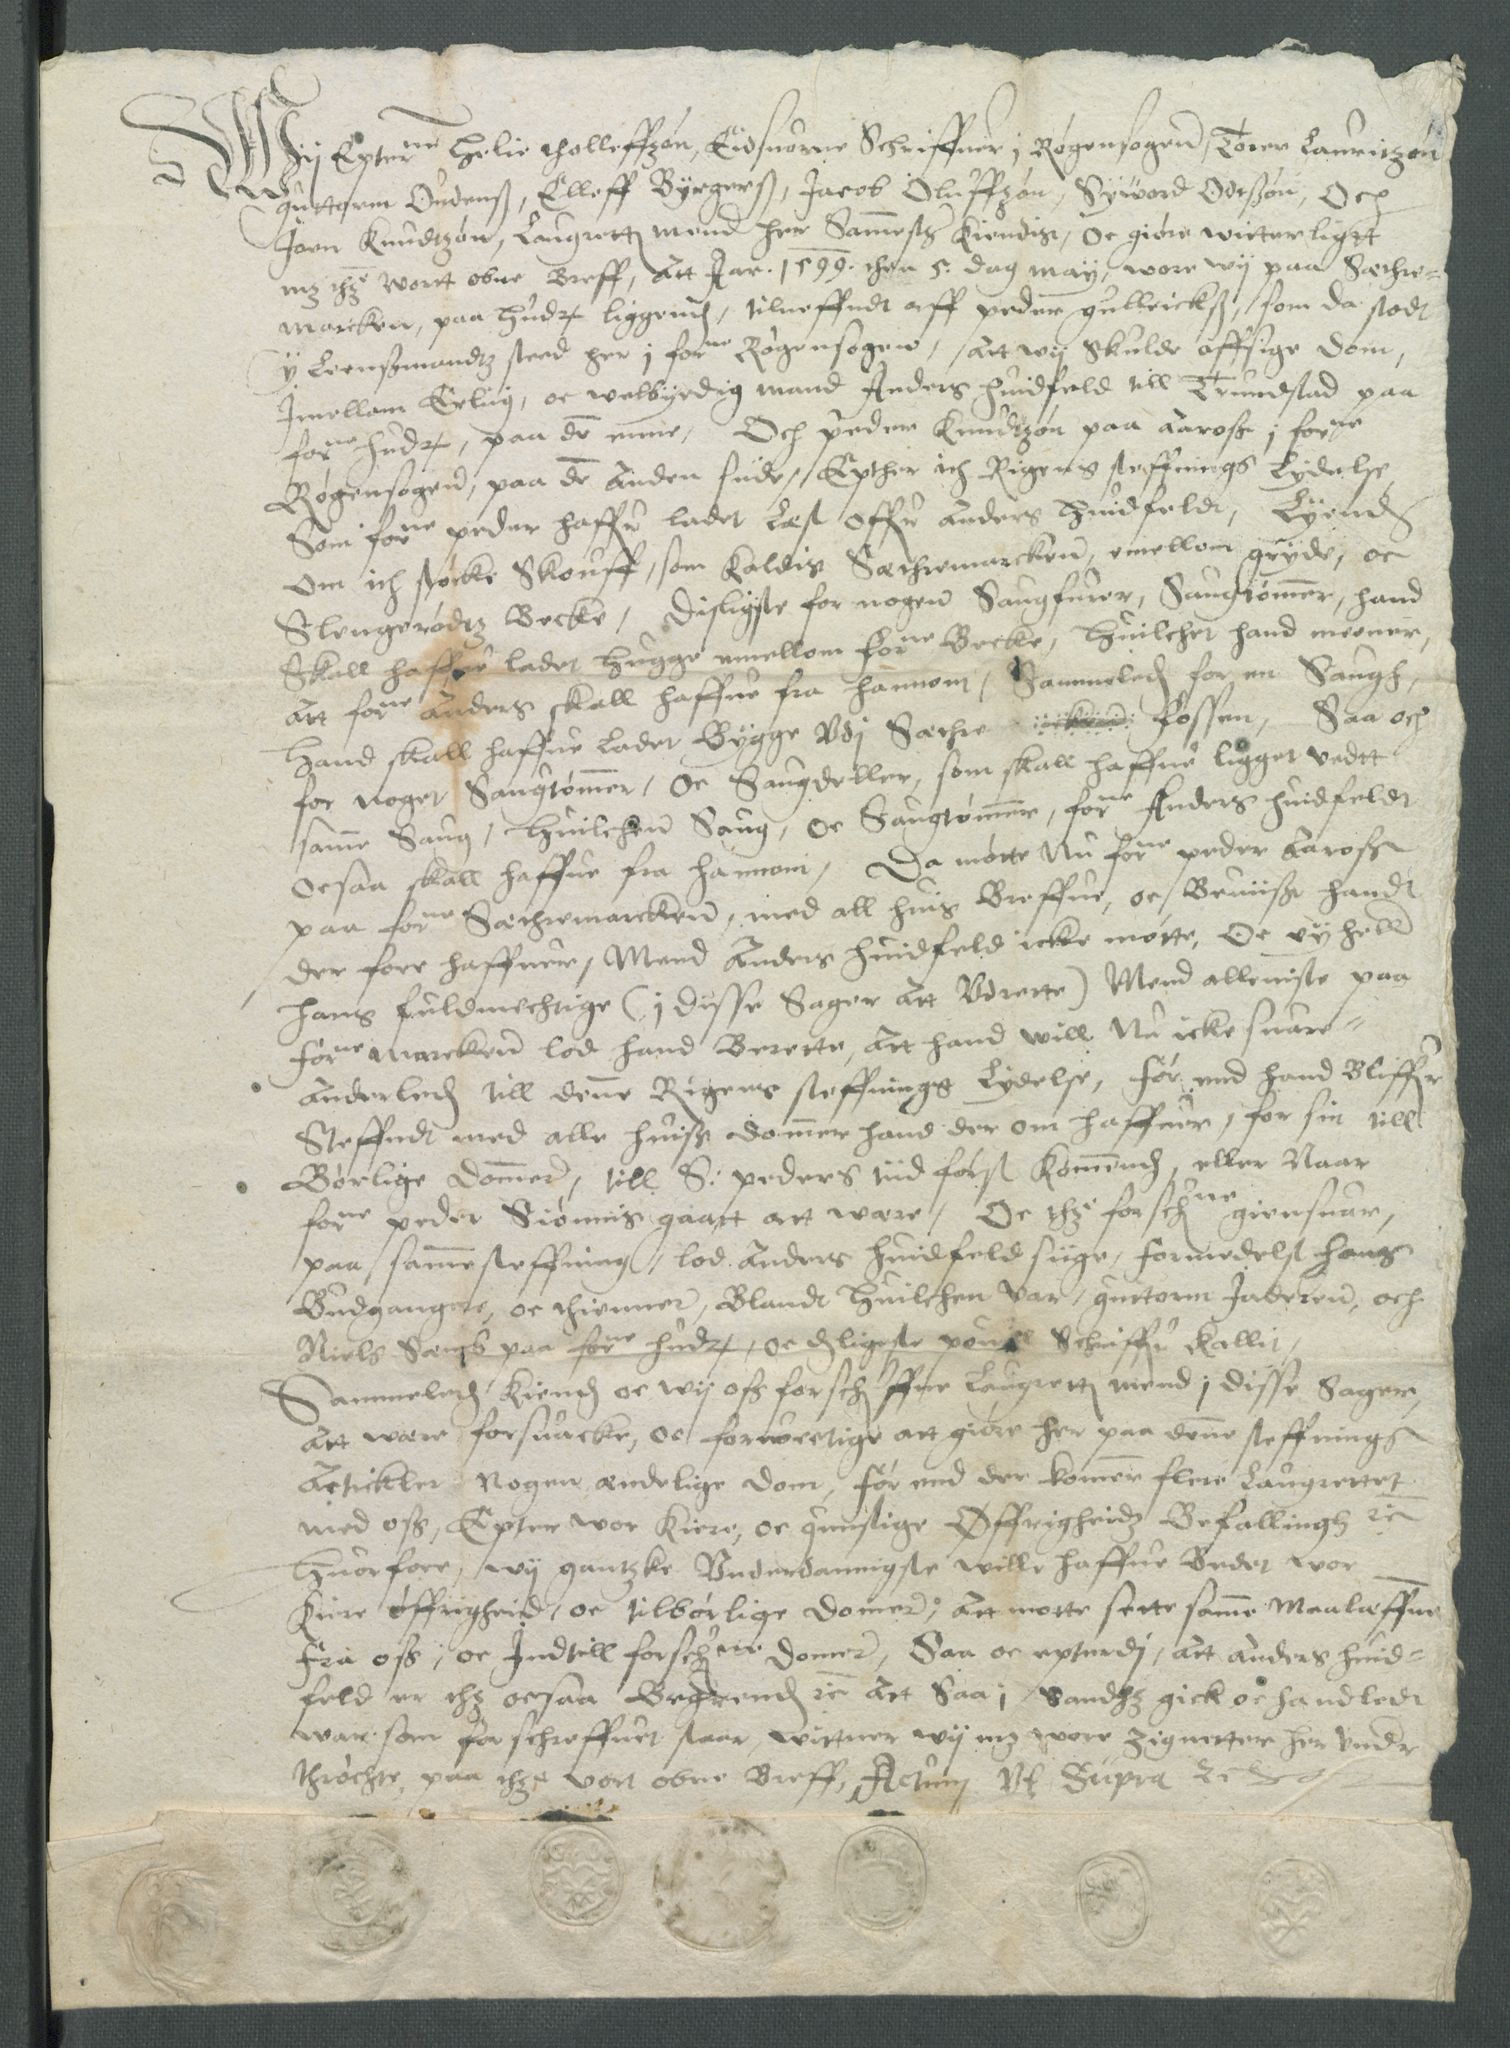 Wij Epterne Helie tholleffzøn, Eidsuorne Schriffuer j Røgensogenn, Torer Lauritzøn
guttorm Oudenß, Elleff Byrgerß, Jacob Oluffzøn, Syword Odeßøn, Och
Joen Knudtzøn, Laugrettz mend her Sammestz Kiendis, oc giøre witterligtt
mz thz wortt obne Breff, Att Aar 1599. then 5. dag maij, wore wij paa Sæthre-
marcken, paa Hudr liggend, tilneffndt aff peder gulbrickß, som da stodt
y Leensmandtz sted her j forne Røgensogen, Att wij skulde affsige dom,
Imellom Erlig, oc welbyrdig mand Anders huidfeld till Trundstad paa
forne hudr, paa den enne, Och peder Knudtzøn paa Aaroß j forne
Røgensogen, paa den Anden side, Epther ith Rigens steffnings Lydelse,
Som forne peder haffuer ladet Læst offuer Anders huidfeldt, Lyend
om ith støcke Skouff, som Kaldis Sæthremarckenn, emellom gryde, oc
Slengerødtz Becke, Disligste for nogen Saugfurer, Saugtømmer, hand
Skall haffue ladet hugge emellom forne Becke, huilchet hand meener,
Att forne Anders skall haffue fra hannom, Sammeled for en Saugh,
Hand skall haffue Ladet Bygge vdj Sæthre fossen, Saa och
for noget Saugtømmer, oc Saugdeller, som skall haffue ligget vedtt
samme Saug, huilchen Saug, oc Saugtømmere, forne Anders huidfeldt
ocsaa skall haffue fra hannom, Da møtte Nu forne peder Aaroß
paa forne Sæthremarckenn, med all huis Breffue, oc Beuiißt handt
der fore haffuer, Mend Anders huidfeld icke møtte, Oc ey heller
hans fuldmechtige (j disse Sager Att vdrette) Mend alleniste paa
forne Marckenn lod hand Berette, Att hand will Nu icke suare
Anderled till denne Rigens steffnings Lydelse, før end hand Bliffuer
Steffndt med alle huiss dommer hand der om haffuer, for sin till
Børlige dommer, till S: peders tiid først Kommend, eller Naar
forne peder Siønnis gaatt att were, Oc thz forschne giensuar,
paa samme steffning, lod Anders huidfeld siige, formedelst hans
Budgangere, oc thienner, Blandt huilchen var, guttorm Jaderen, och
Niels Sæmb paa forne hudr, oc deligeste pouell Schriffuer Kallit,
Sammeled Kiend oc wij oß forschreffne Laugrettz mend j disse Sager,
Att were forsuacke, oc forweetige att giøre her paa denne steffnings
Artickler Nogen endelige dom, før end der komer flere Laugrettet
med oß, Epter wor Kiere, oc gunstige Øffrigheidz Befallingh etc
Huorfore, wij gantzke Vnderdannigste wille haffue Bedet wor
Kiere øffrigheid, oc tilbørlige domere, Att motte sette samme Maal aff
Fra oß, oc Indtill forschne domer, Saa oc epterdj, Att Anders huid-
feld er thz ocsaa Begierend etc Att Saa j Sandhz gick oc handledt
war som forschreffuet staar, wittner wij mz wore Zignetter her vnder
thrøchte, paa thz vort obne Breff, Actum Vt Supra